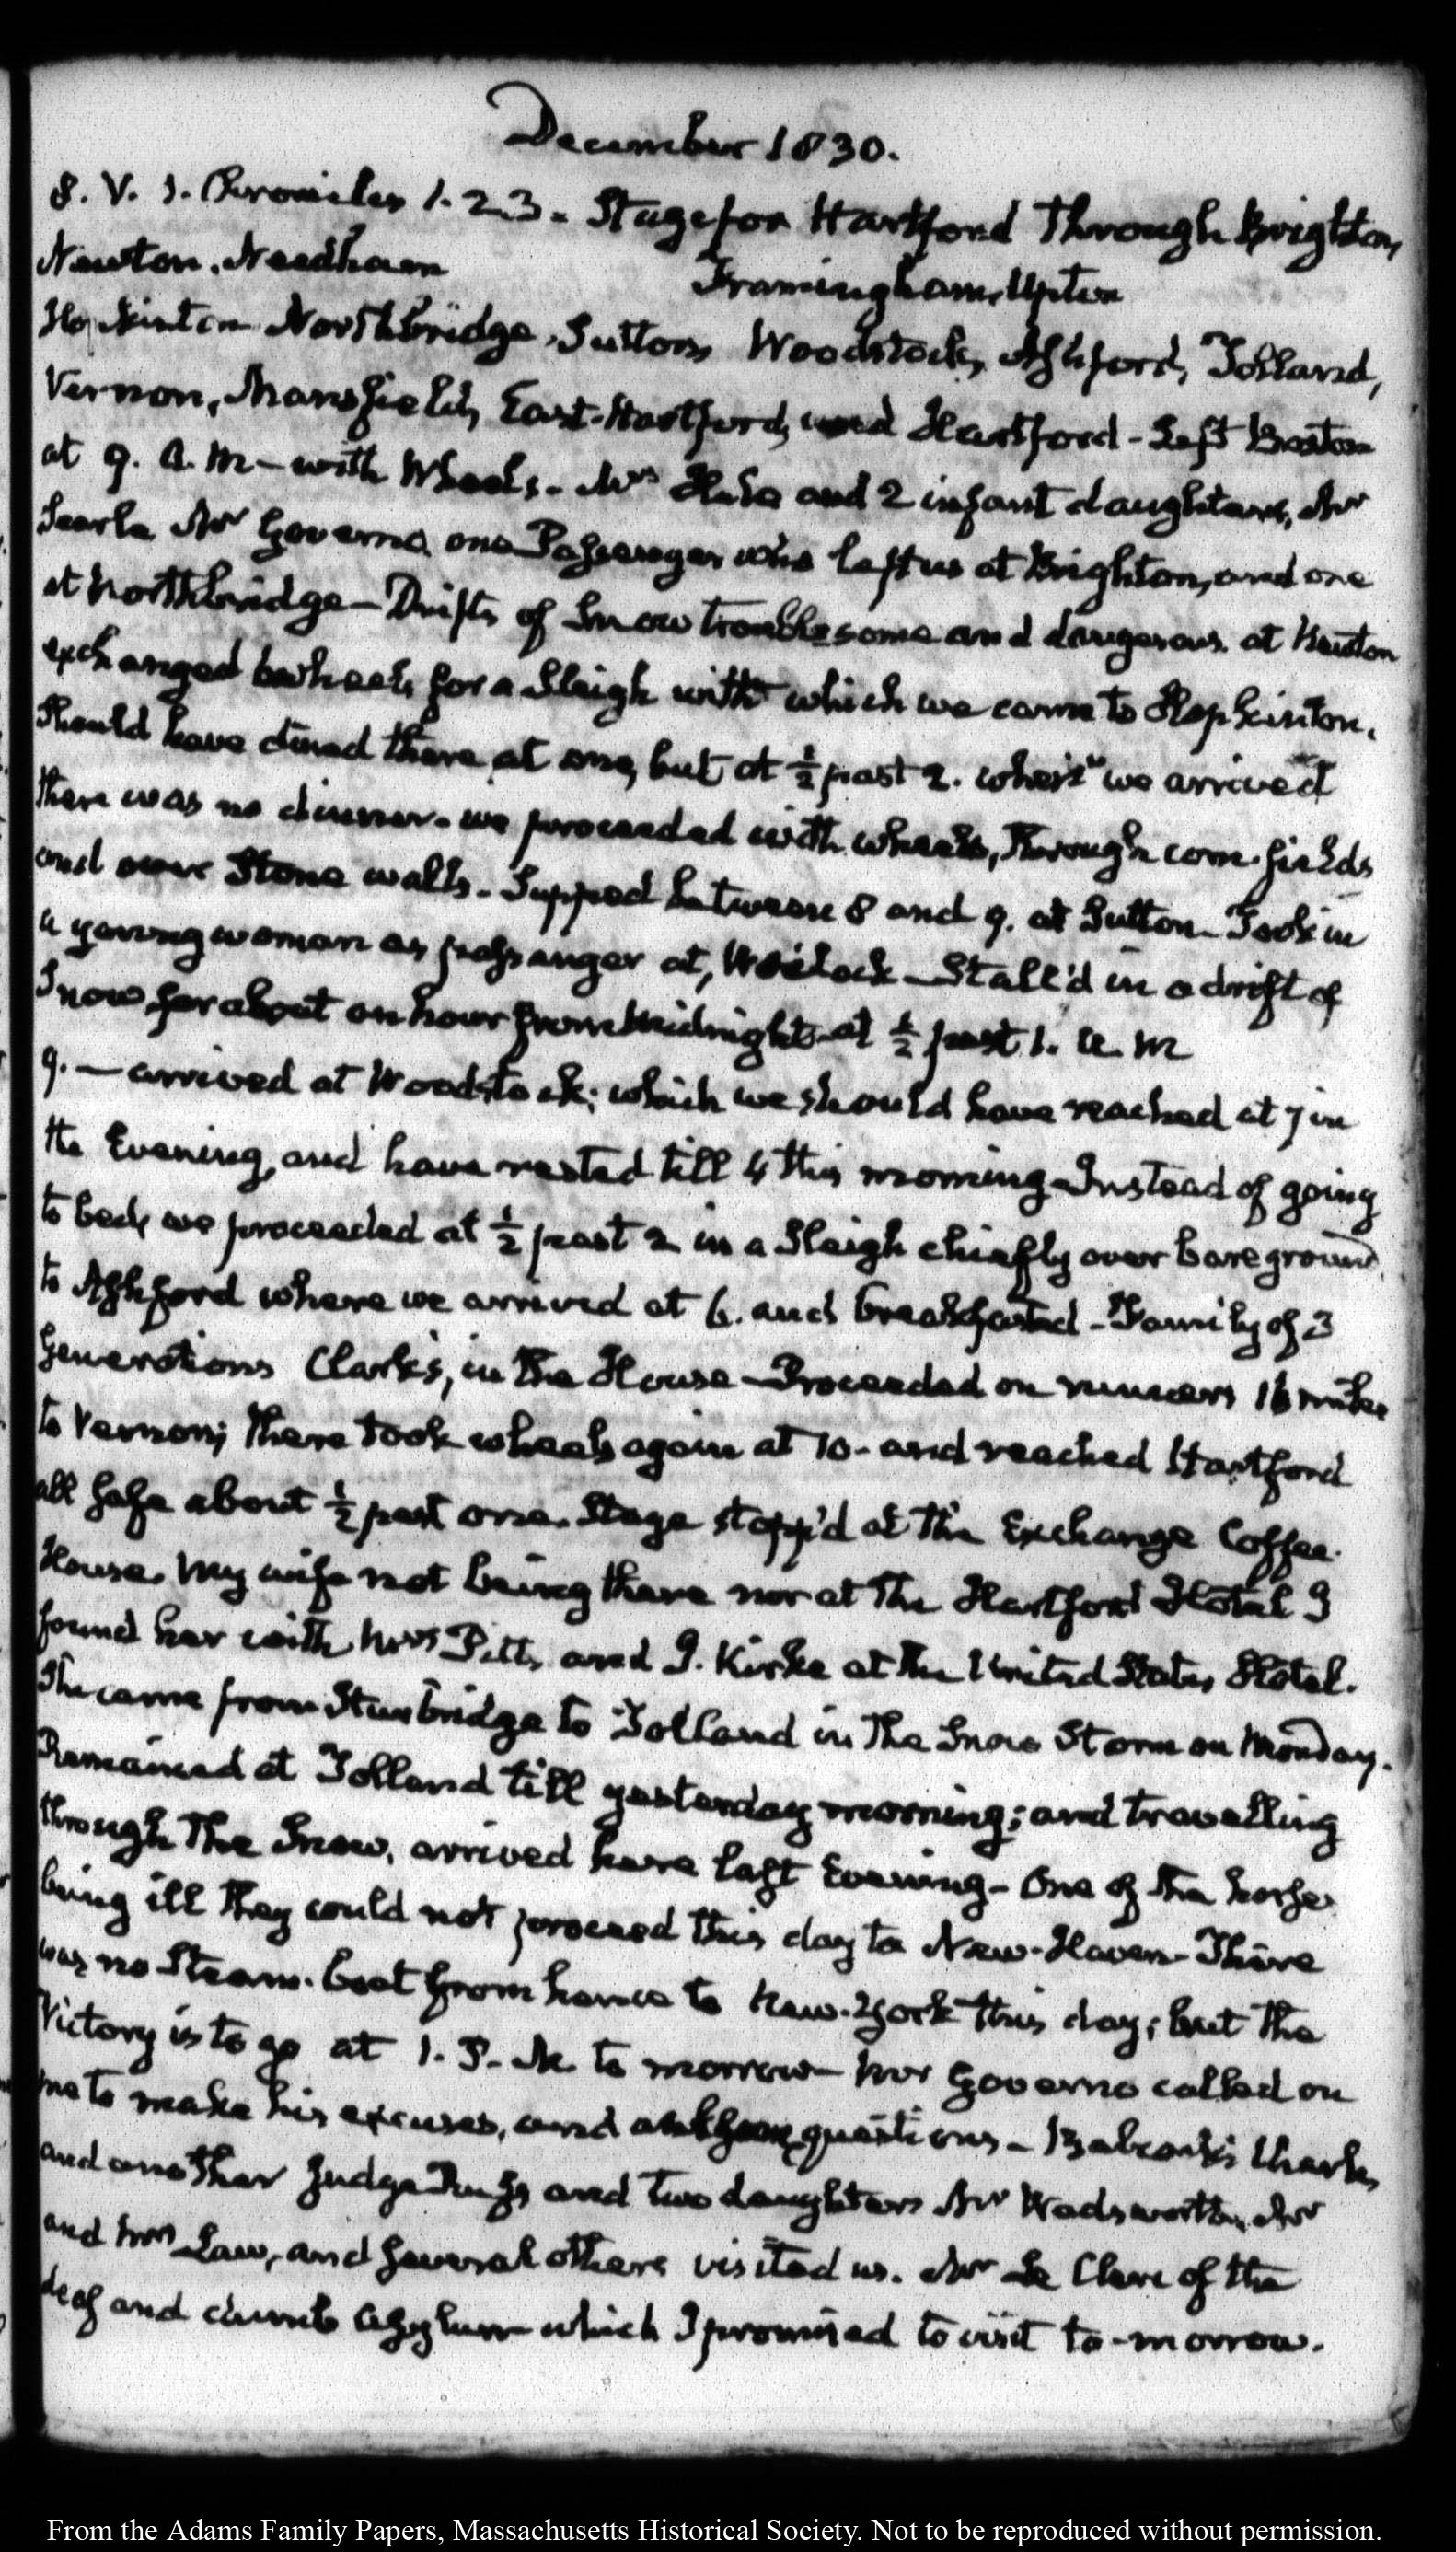 December 1830.
8. V. 1. Chronicles 1. 2. 3. Stage for Hartford Through Brighton,
Newton. Needham Framingham, Upton
Hopkinton Northbridge, Sutton, Woodstock, Ashford, Tolland,
Vernon, Mansfield, East-Hartford, and Hartford - Left Boston
at 9. A.M - with Wheels. Mrs and 2 infant daughters, Mr
Searle Mr Governo one Passenger who left us at Brighton, and one
at Northbridge - Drifts of Snow troublesome and dangerous. at Newton
exchanged wheels for a Sleigh with which we came to Hopkinton.
Should have dined there at one, but at ½ past 2. when we arrived
there was no dinner. we proceeded with wheels, Through corn-fields
and over Stone walls. Supped between 8 and 9. at Sutton - Took in
a young woman as passenger at, - Stall'd in a drift of
Snow for about an hour from Midnight - at ½ past 1. A. M
9. - arrived at Woodstock; which we should have reached at 7 in
the Evening, and have rested till 4 this morning - Instead of going
to bed, we proceeded at ½ past 2 in a Sleigh chiefly over bare ground
to Ashford where we arrived at 6. and breakfasted - Family of 3
Generations Clark's, in the House - Proceeded on runners 16 miles
to Vernon; There took wheels again at 10 - and reached Hartford
all safe about ½ past one. Stage stopp'd at the Exchange Coffee-
House. My wife not being there nor at The Hartford Hotel I
found her with Mrs Pitts, and J. Kirke at the United States Hotel.
She came from Sturbridge to Tolland in The Snow Storm on Monday.
Remained at Tolland till yesterday morning; and travelling
through The Snow, arrived here last Evening - One of the horses
being ill They could not proceed this day to New-Haven - There
was no Steam-boat from hence to New-York this day; but the
Victory is to go at 1. P. M. to morrow - Mr Governo called on
me to make his excuses, and ask questions - Charles
and another Judge and two daughters Mr Wadsworth, Mr
and Mrs Law, and several others visited us. Mr Le Clerc of the
deaf and dumb Asylum which I promised to visit to-morrow.
From the Adams Family Papers, Massachusetts Historical Society. Not to be reproduced without permission.